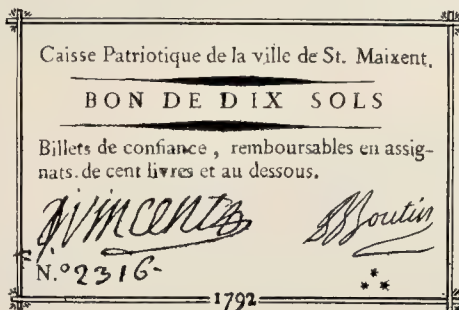 Caisse Patriotique de la ville de St. Maixent.
BON DE DIX SOLS
Billets de confiance, remboursables en assig-
nats de cent livres et au dessous.
N.º 2316-
1792